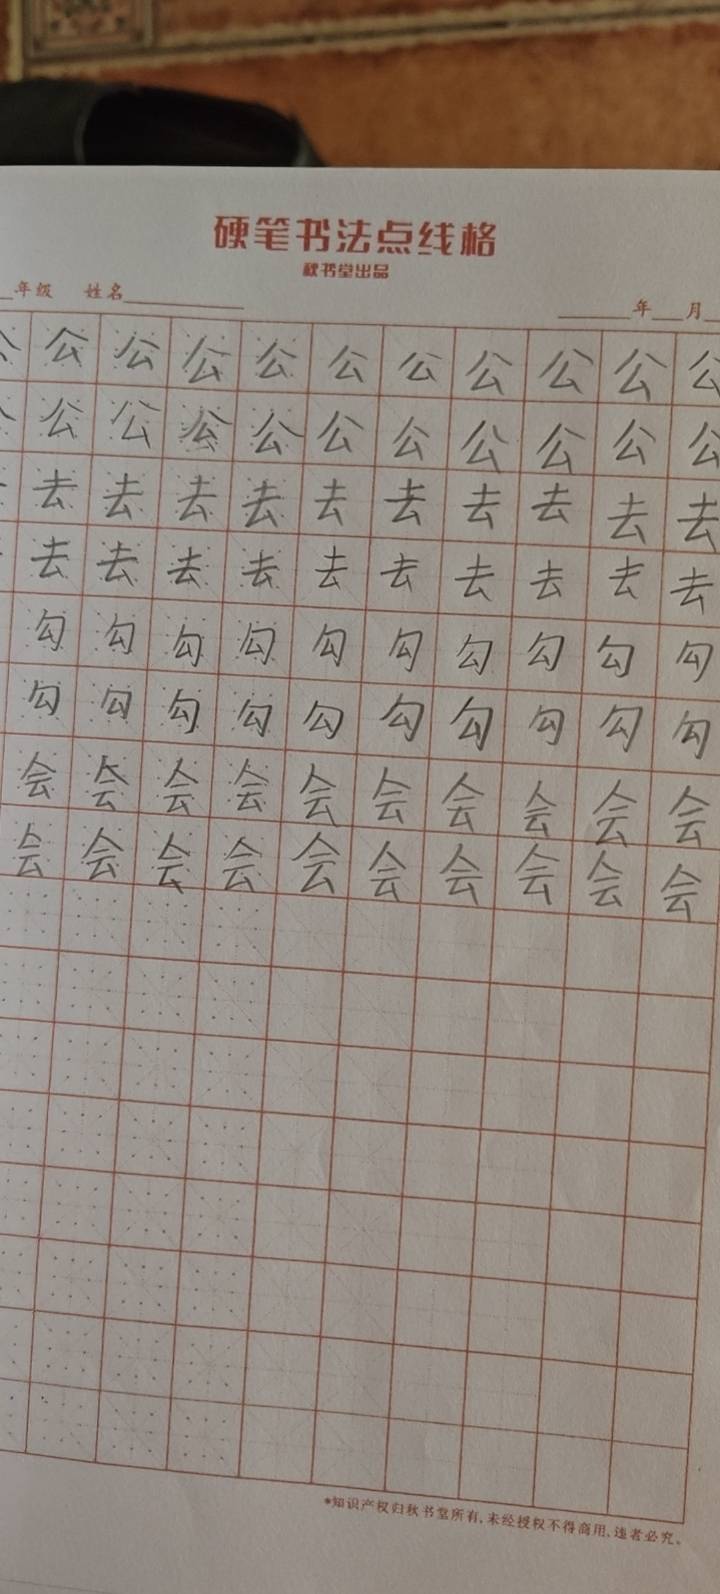 硬笔书法点线格
秋书堂出品
年级 姓名 年 月
公 公 公 公 公 公 公 公 公 公 公
公 公 公 公 公 公 公 公 公 公 公
去 去 去 去 去 去 去 去 去 去
去 去 去 去 去 去 去 去 去 去
勾 勾 勾 勾 勾 勾 勾 勾 勾 勾
勾 勾 勾 勾 勾 勾 勾 勾 勾 勾
会 会 会 会 会 会 会 会 会 会
会 会 会 会 会 会 会 会 会 会
*知识产权归秋书堂所有,未经授权不得商用,违者必究。